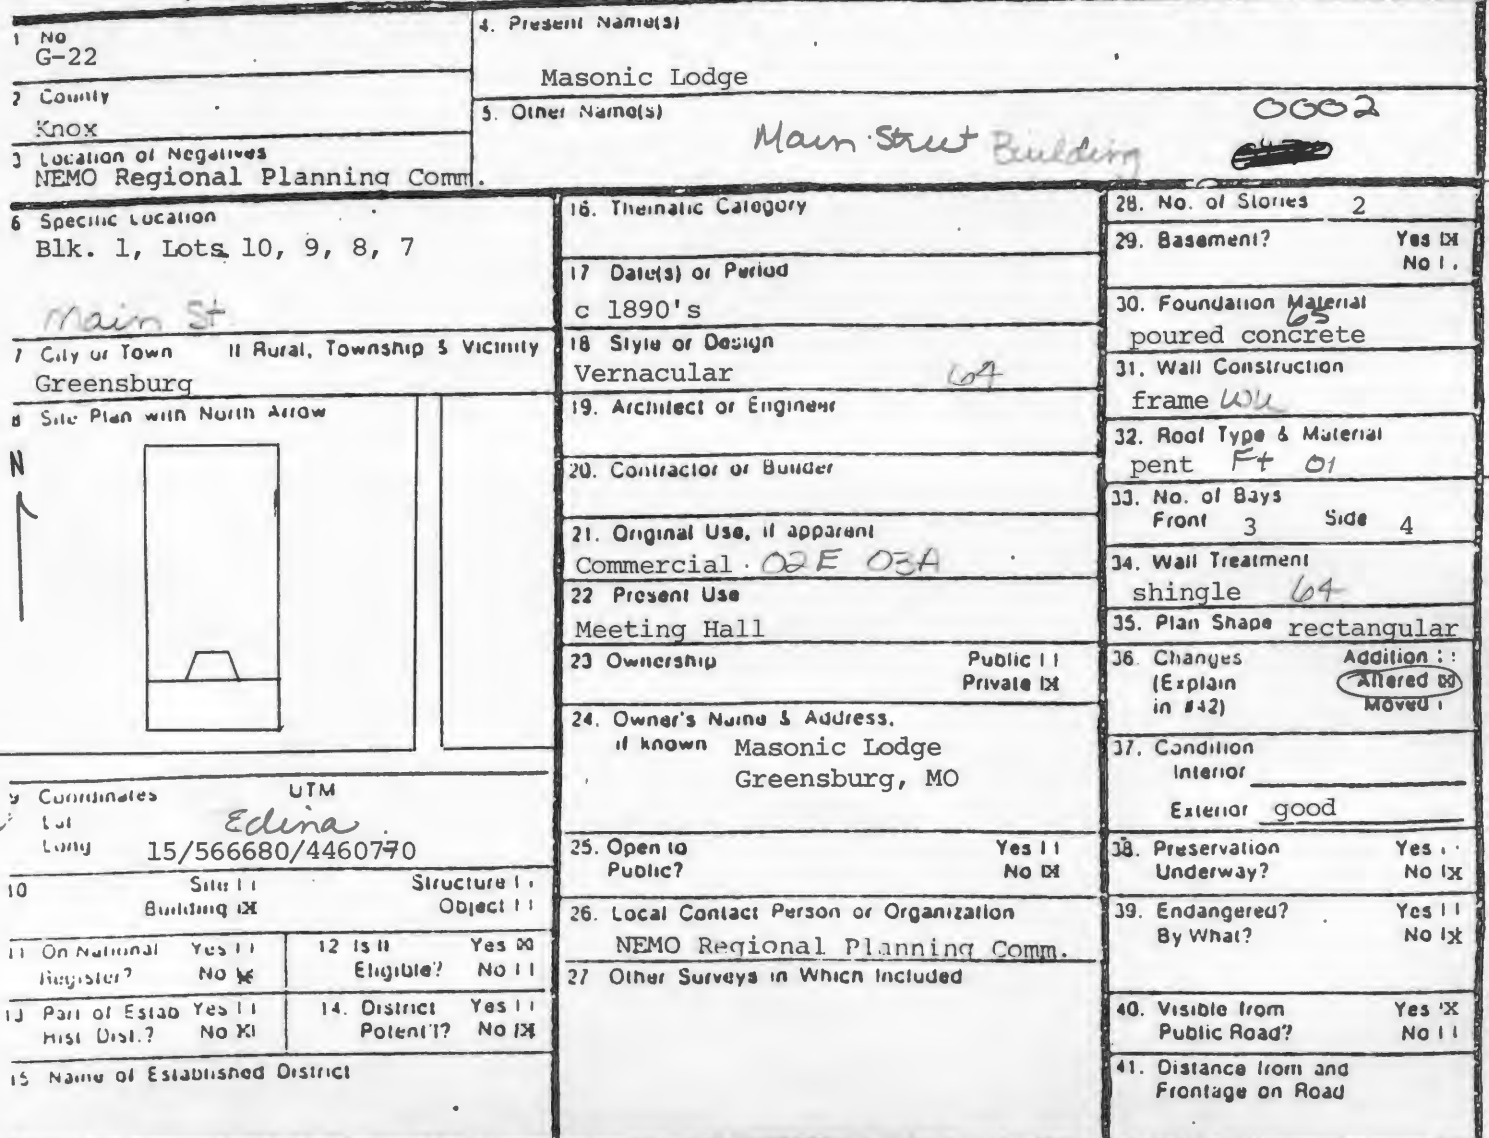 1 No
G-22
2 County
Knox
3 Location of Negatives
NEMO Regional Planning Comm.
4. Present Name(s)
Masonic Lodge
5. Other Name(s)
Main Street Building
0002
6 Specific Location
Blk. 1, Lots 10, 9, 8, 7
Main St
7 City or Town If Rural, Township & Vicinity
Greensburg
8 Site Plan with North Arrow
N
9 Coordinates UTM
Lat
Edina
Long 15/566680/4460770
10 Site Structure
Building X Object
11 On National Register? Yes No X
12 Is It Eligible? Yes X No
13 Part of Estab Hist Dist.? Yes No X
14. District Potent'l? Yes No X
15 Name of Established District
16. Thematic Category
17 Date(s) or Period
c 1890's
18 Style or Design
Vernacular 64
19. Architect or Engineer
20. Contractor or Builder
21. Original Use, if apparent
Commercial 02E 03A
22 Present Use
Meeting Hall
23 Ownership Public
Private X
24. Owner's Name & Address,
if known Masonic Lodge
Greensburg, MO
25. Open to Yes
Public? No X
26. Local Contact Person or Organization
NEMO Regional Planning Comm.
27 Other Surveys in Which Included
28. No. of Stories 2
29. Basement? Yes X
No
30. Foundation Material
65
poured concrete
31. Wall Construction
frame
32. Roof Type & Material
pent Ft 01
33. No. of Bays
Front 3 Side 4
34. Wall Treatment
shingle 64
35. Plan Shape rectangular
36. Changes Addition
(Explain Altered X
in #42) Moved
37. Condition
Interior
Exterior good
38. Preservation Yes
Underway? No X
39. Endangered? Yes
By What? No X
40. Visible from Yes X
Public Road? No
41. Distance from and
Frontage on Road